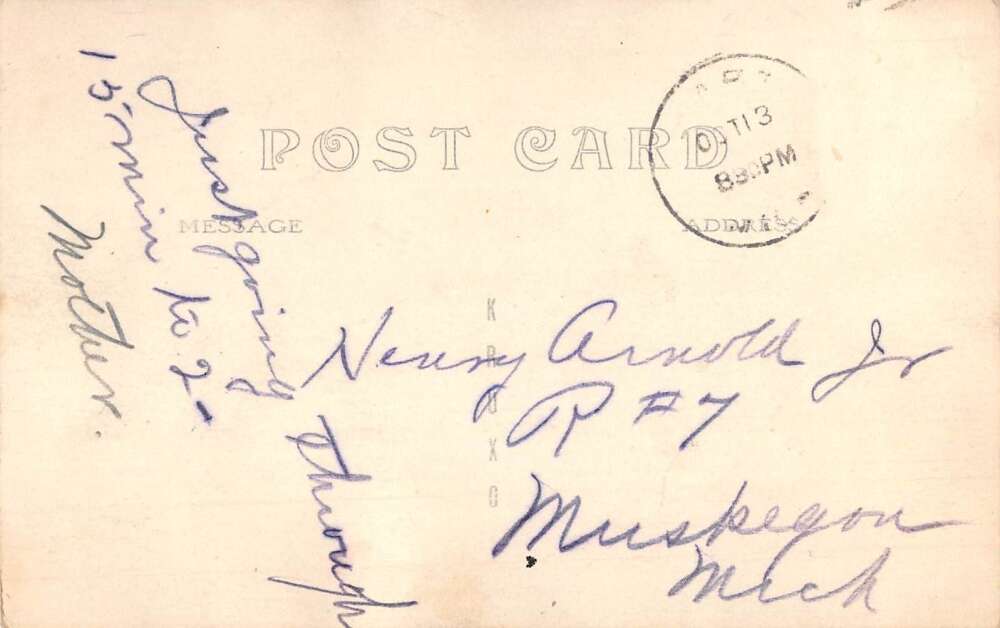 POST CARD
MESSAGE
ADDRESS
OCT 13
830 PM
Just going through
15 min to 2 -
Mother.
Henry Arnold Jr
R #7
Muskegon
Mich